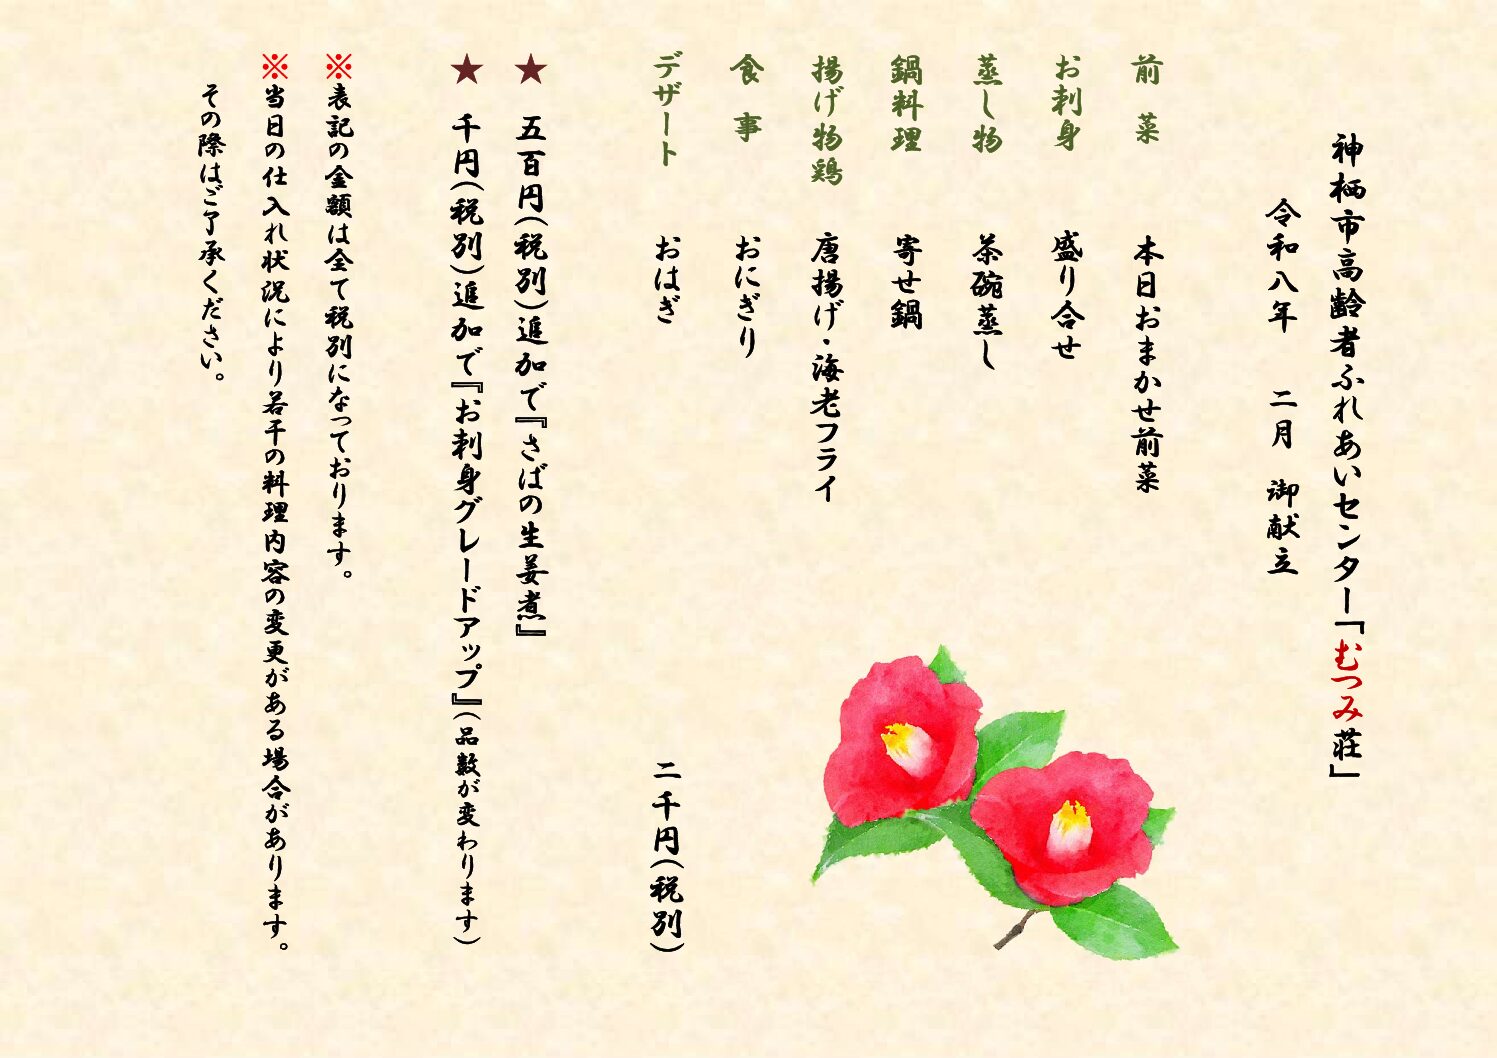 神栖市高齢者ふれあいセンター「むつみ荘」
令和八年　二月　御献立
前菜　本日おまかせ前菜
お刺身　盛り合せ
蒸し物　茶碗蒸し
鍋料理　寄せ鍋
揚げ物鶏　唐揚げ・海老フライ
食事　おにぎり
デザート　おはぎ　二千円（税別）
★　五百円（税別）追加で『さばの生姜煮』
★　千円（税別）追加で『お刺身グレードアップ』（品数が変わります）
※表記の金額は全て税別になっております。
※当日の仕入れ状況により若干の料理内容の変更がある場合があります。
その際はご了承ください。